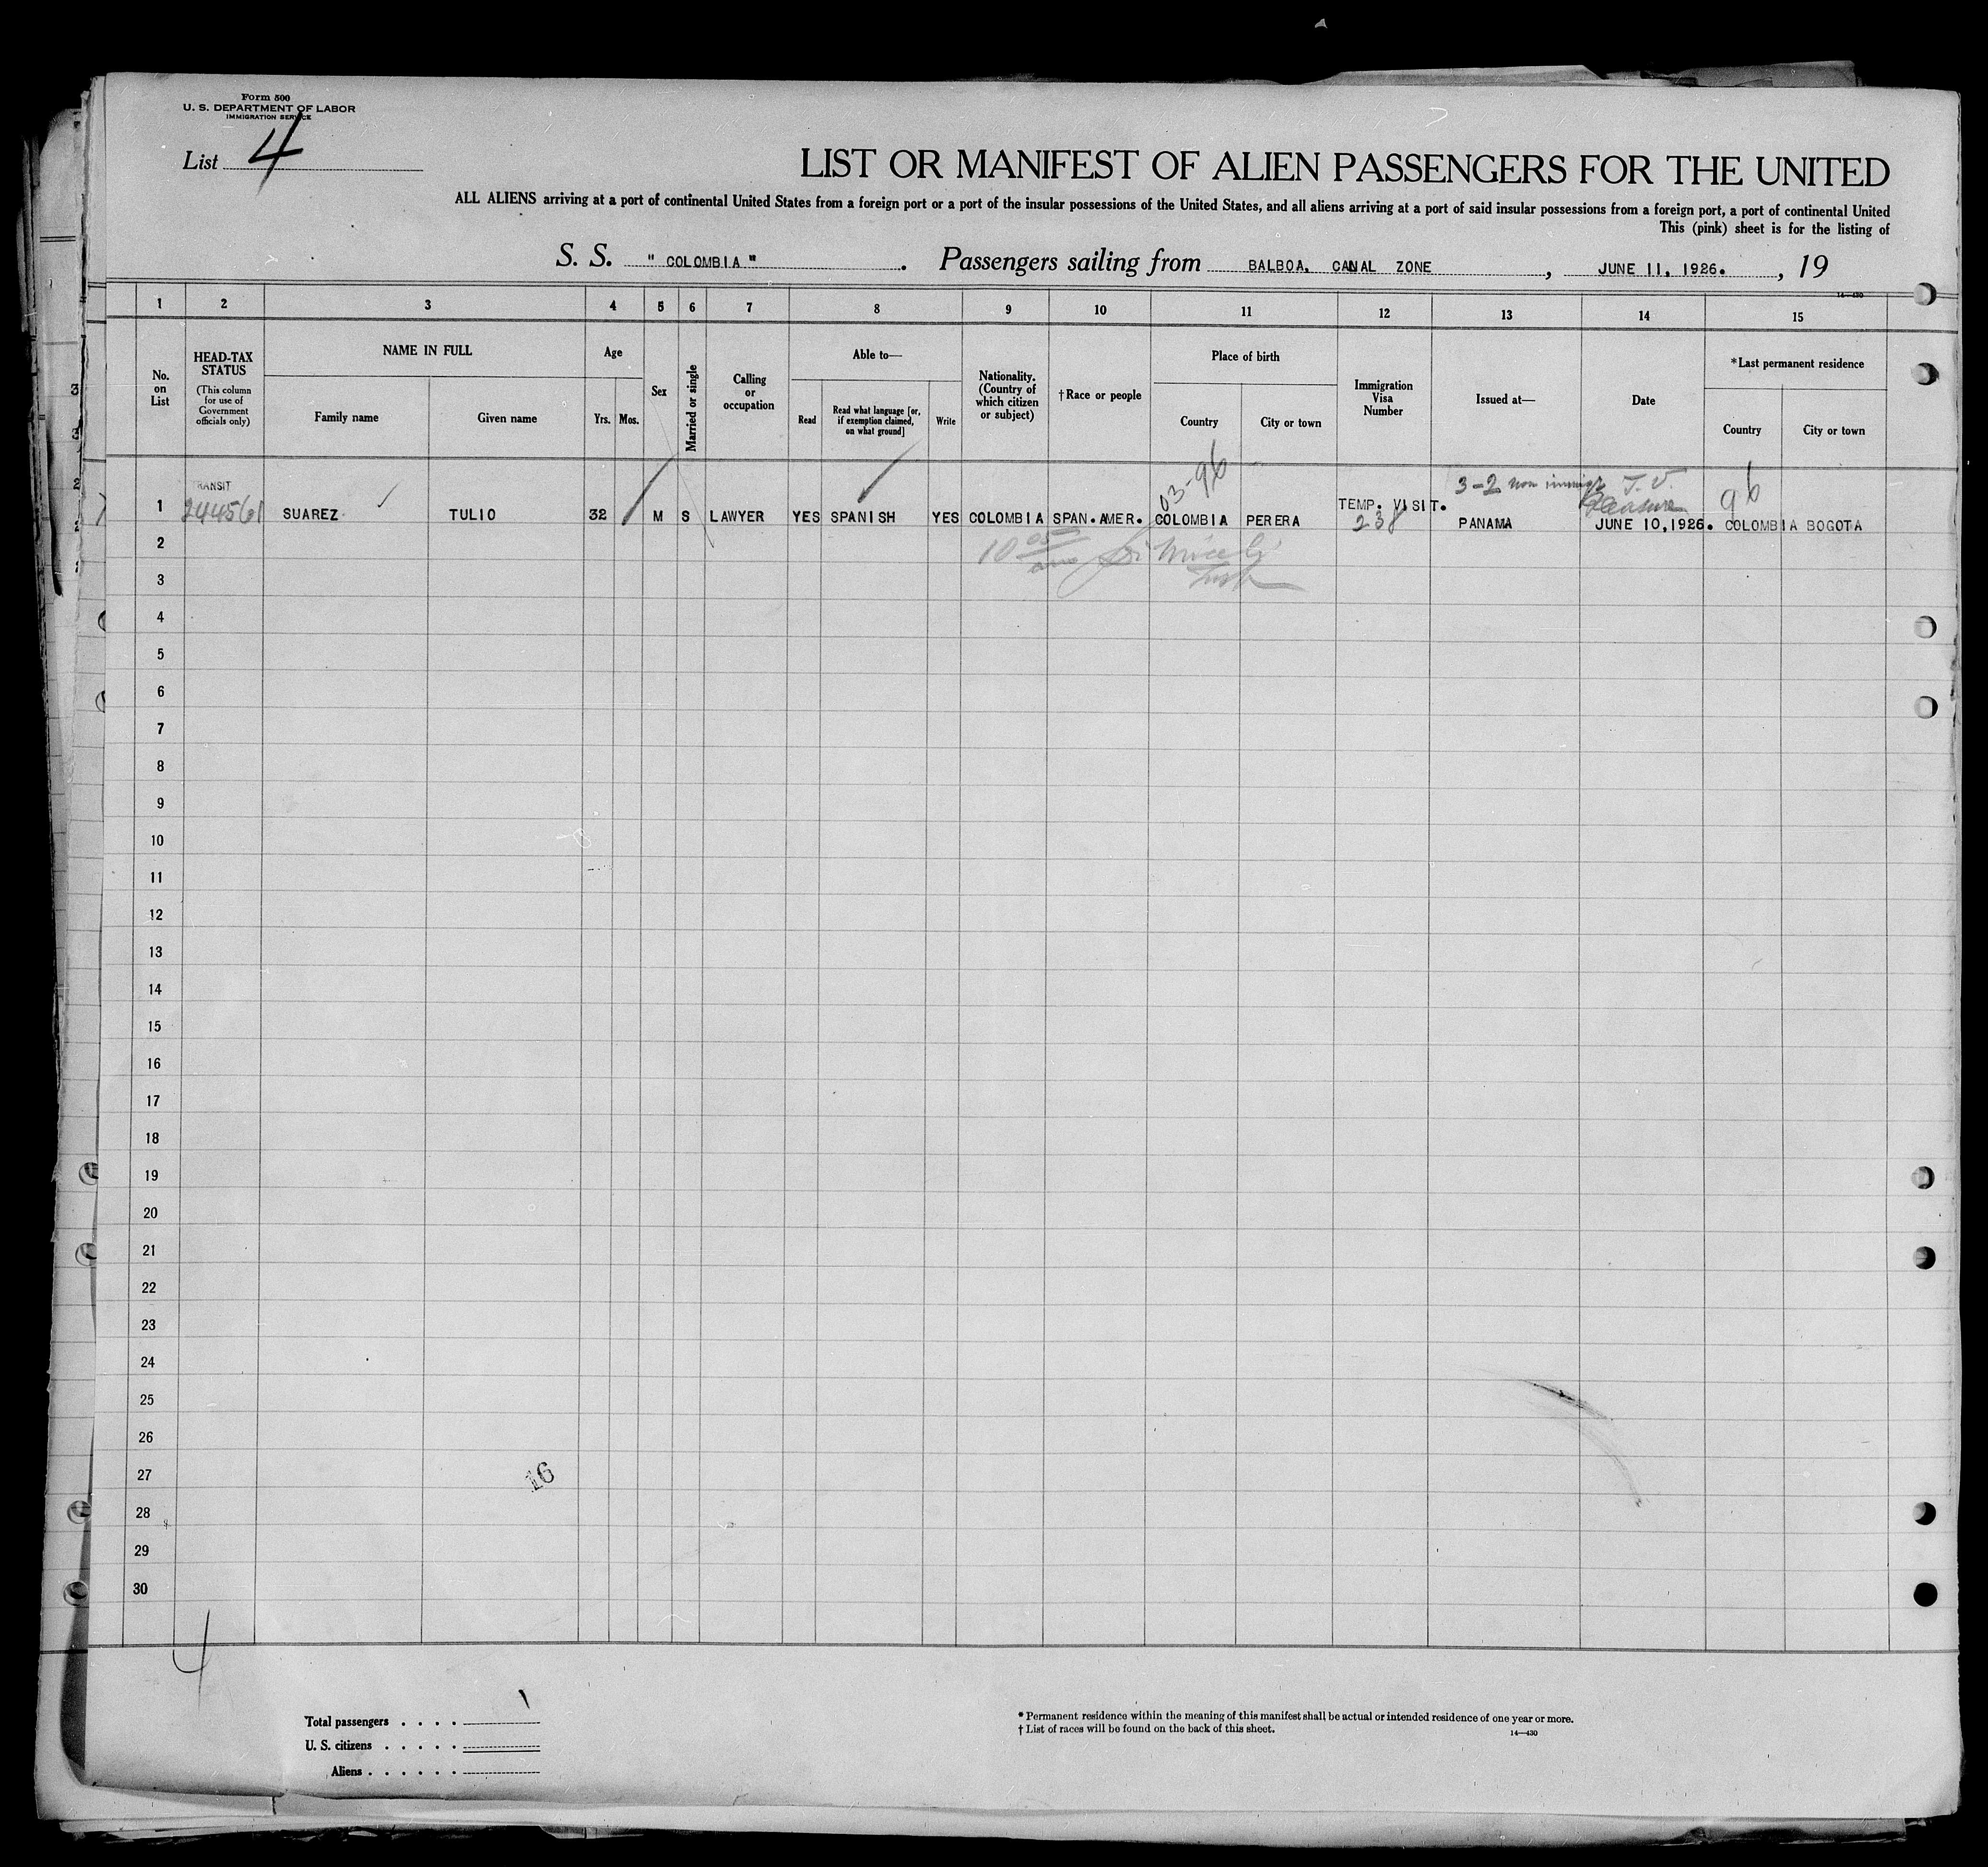 Form 500
U. S. DEPARTMENT OF LABOR
IMMIGRATION SERVICE
List 4
LIST OR MANIFEST OF ALIEN PASSENGERS FOR THE UNITED
ALL ALIENS arriving at a port of continental United States from a foreign port or a port of the insular possessions of the United States, and all aliens arriving at a port of said insular possessions from a foreign port, a port of continental United
This (pink) sheet is for the listing of
S. S. " COLOMBIA " . Passengers sailing from BALBOA, CANAL ZONE , JUNE 11, 1926. , 19
14—430
1 2 3 4 5 6 7 8 9 10 11 12 13 14 15
No. on List
HEAD-TAX STATUS
(This column for use of Government officials only)
NAME IN FULL
Family name
Given name
Age
Yrs. Mos.
Sex
Married or single
Calling or occupation
Able to—
Read
Read what language [or, if exemption claimed, on what ground]
Write
Nationality. (Country of which citizen or subject)
†Race or people
Place of birth
Country
City or town
Immigration Visa Number
Issued at—
Date
*Last permanent residence
Country
City or town
03-96
3-2 non immig
T. V.
Pleasure
96
TRANSIT
1 244561 SUAREZ TULIO 32 M S LAWYER YES SPANISH YES COLOMBIA SPAN.AMER. COLOMBIA PERERA TEMP. VISIT. 238 PANAMA JUNE 10,1926. COLOMBIA BOGOTA
2
10
3
4
5
6
7
8
9
10
11
12
13
14
15
16
17
18
19
20
21
22
23
24
25
26
27
16
28
29
30
4
Total passengers . . . . 1
U. S. citizens . . . . .
Aliens . . . . . .
* Permanent residence within the meaning of this manifest shall be actual or intended residence of one year or more.
† List of races will be found on the back of this sheet.
14—430